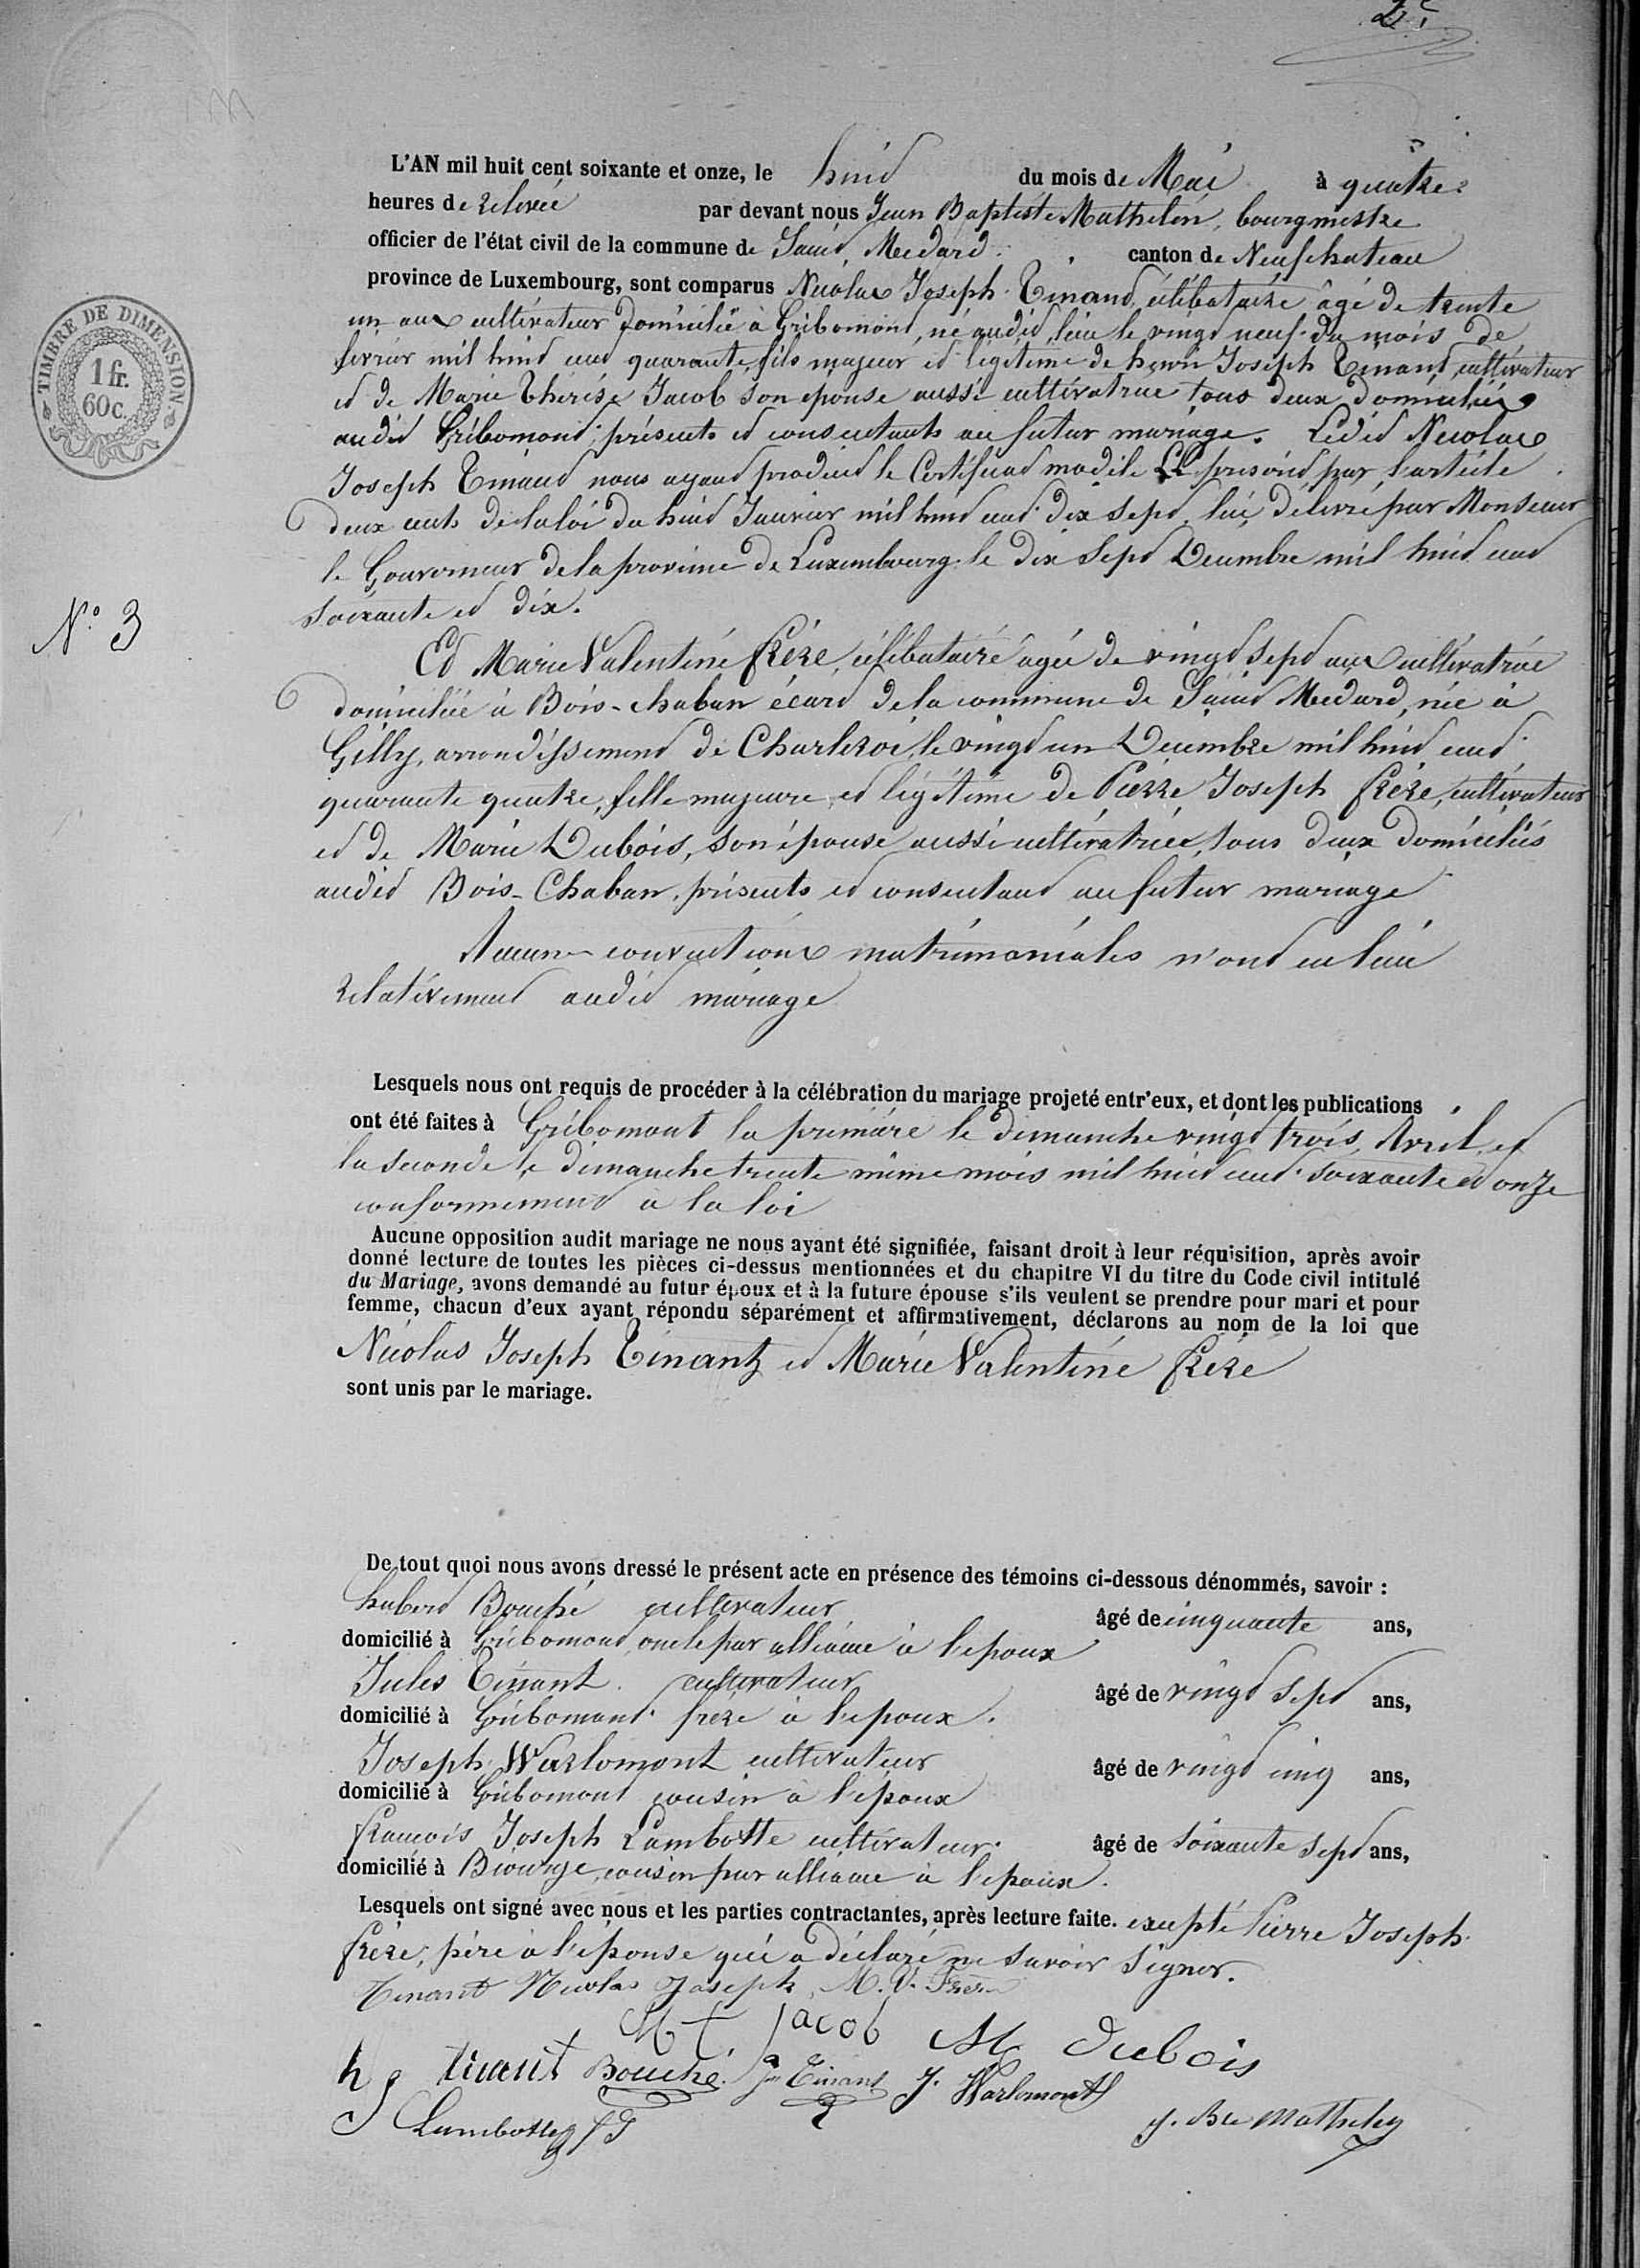 2e
TIMBRE DE DIMENSION
1 fr.
60 c.
L'AN mil huit cent soixante et onze, le huit du mois de Mai à quatre
heures de relevée par devant nous Jean Baptiste Mathelin, bourgmestre
officier de l'état civil de la commune de Saint Medard canton de Neufchateau
province de Luxembourg, sont comparus Nicolas Joseph Tinant, célibataire âgé de trente
un ans cultivateur domicilié à Gribomont, né audit lieu le vingt neuf du mois de
fevrier mil huit cent quarante, fils majeur et légitime de henri Joseph Tinant, cultivateur
et de Marie Thérèse Jacob son épouse aussi cultivatrice tous deux domiciliés
audit Gribomont, présents et consentants au futur mariage. Ledit Nicolas
Joseph Tinant nous ayant produit le Certificat modèle LL prescrit par l'article
deux cents de la loi du huit Janvier mil huit cent dix sept, lui délivré par Monsieur
le Gouverneur de la province de Luxembourg le dix sept Decembre mil huit cent
soixante et dix.
N° 3
Et Marie Valentine frère, célibataire âgée de vingt sept ans cultivatrice
domiciliée à Bois-chaban écart de la commune de Saint Medard, née à
Gilly, arrondissement de Charleroi, le vingt un Decembre mil huit cent
quarante quatre, fille majeure et légitime de Pierre Joseph frère, cultivateur
et de Marie Dubois, son épouse aussi cultivatrice, tous deux domiciliés
audit Bois-Chaban, présents et consentant au futur mariage
Aucune conventions matrimoniales n'ont eu lieu
relativement audit mariage
Lesquels nous ont requis de procéder à la célébration du mariage projeté entr'eux, et dont les publications
ont été faites à Gribomont la première le dimanche vingt trois Avril et
la seconde le dimanche trente même mois mil huit cent soixante et onze
conformement à la loi
Aucune opposition audit mariage ne nous ayant été signifiée, faisant droit à leur réquisition, après avoir
donné lecture de toutes les pièces ci-dessus mentionnées et du chapitre VI du titre du Code civil intitulé
du Mariage, avons demandé au futur époux et à la future épouse s'ils veulent se prendre pour mari et pour
femme, chacun d'eux ayant répondu séparément et affirmativement, déclarons au nom de la loi que
Nicolas Joseph Tinant et Marie Valentine frère
sont unis par le mariage.
De tout quoi nous avons dressé le présent acte en présence des témoins ci-dessous dénommés, savoir :
hubert Bouché cultivateur âgé de cinquante ans,
domicilié à Gribomont, oncle par alliance à l'epoux
Jules Tinant cultivateur âgé de vingt sept ans,
domicilié à Gribomont frère à l'epoux.
Joseph Warlomont cultivateur âgé de vingt cinq ans,
domicilié à Gribomont cousin à l'époux
françois Joseph Lambotte cultivateur âgé de soixante sept ans,
domicilié à Biourge, cousin par alliance à l'epoux.
Lesquels ont signé avec nous et les parties contractantes, après lecture faite. excepté Pierre Joseph
frère, père à l'épouse qui a déclaré ne savoir signer.
Tinant Nicolas Joseph M. V. Frère
M t Jacob M Dubois
h J tinant Bouché Tinant J. Warlomont
Lambotte f J J. Bte Mathelin